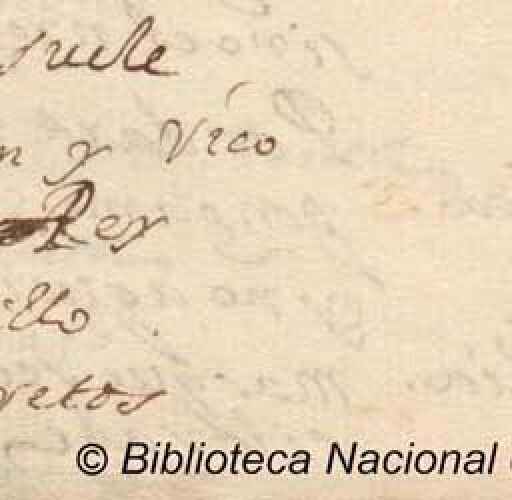 suele
n y Vico
Rey
illo
retos
© Biblioteca Nacional